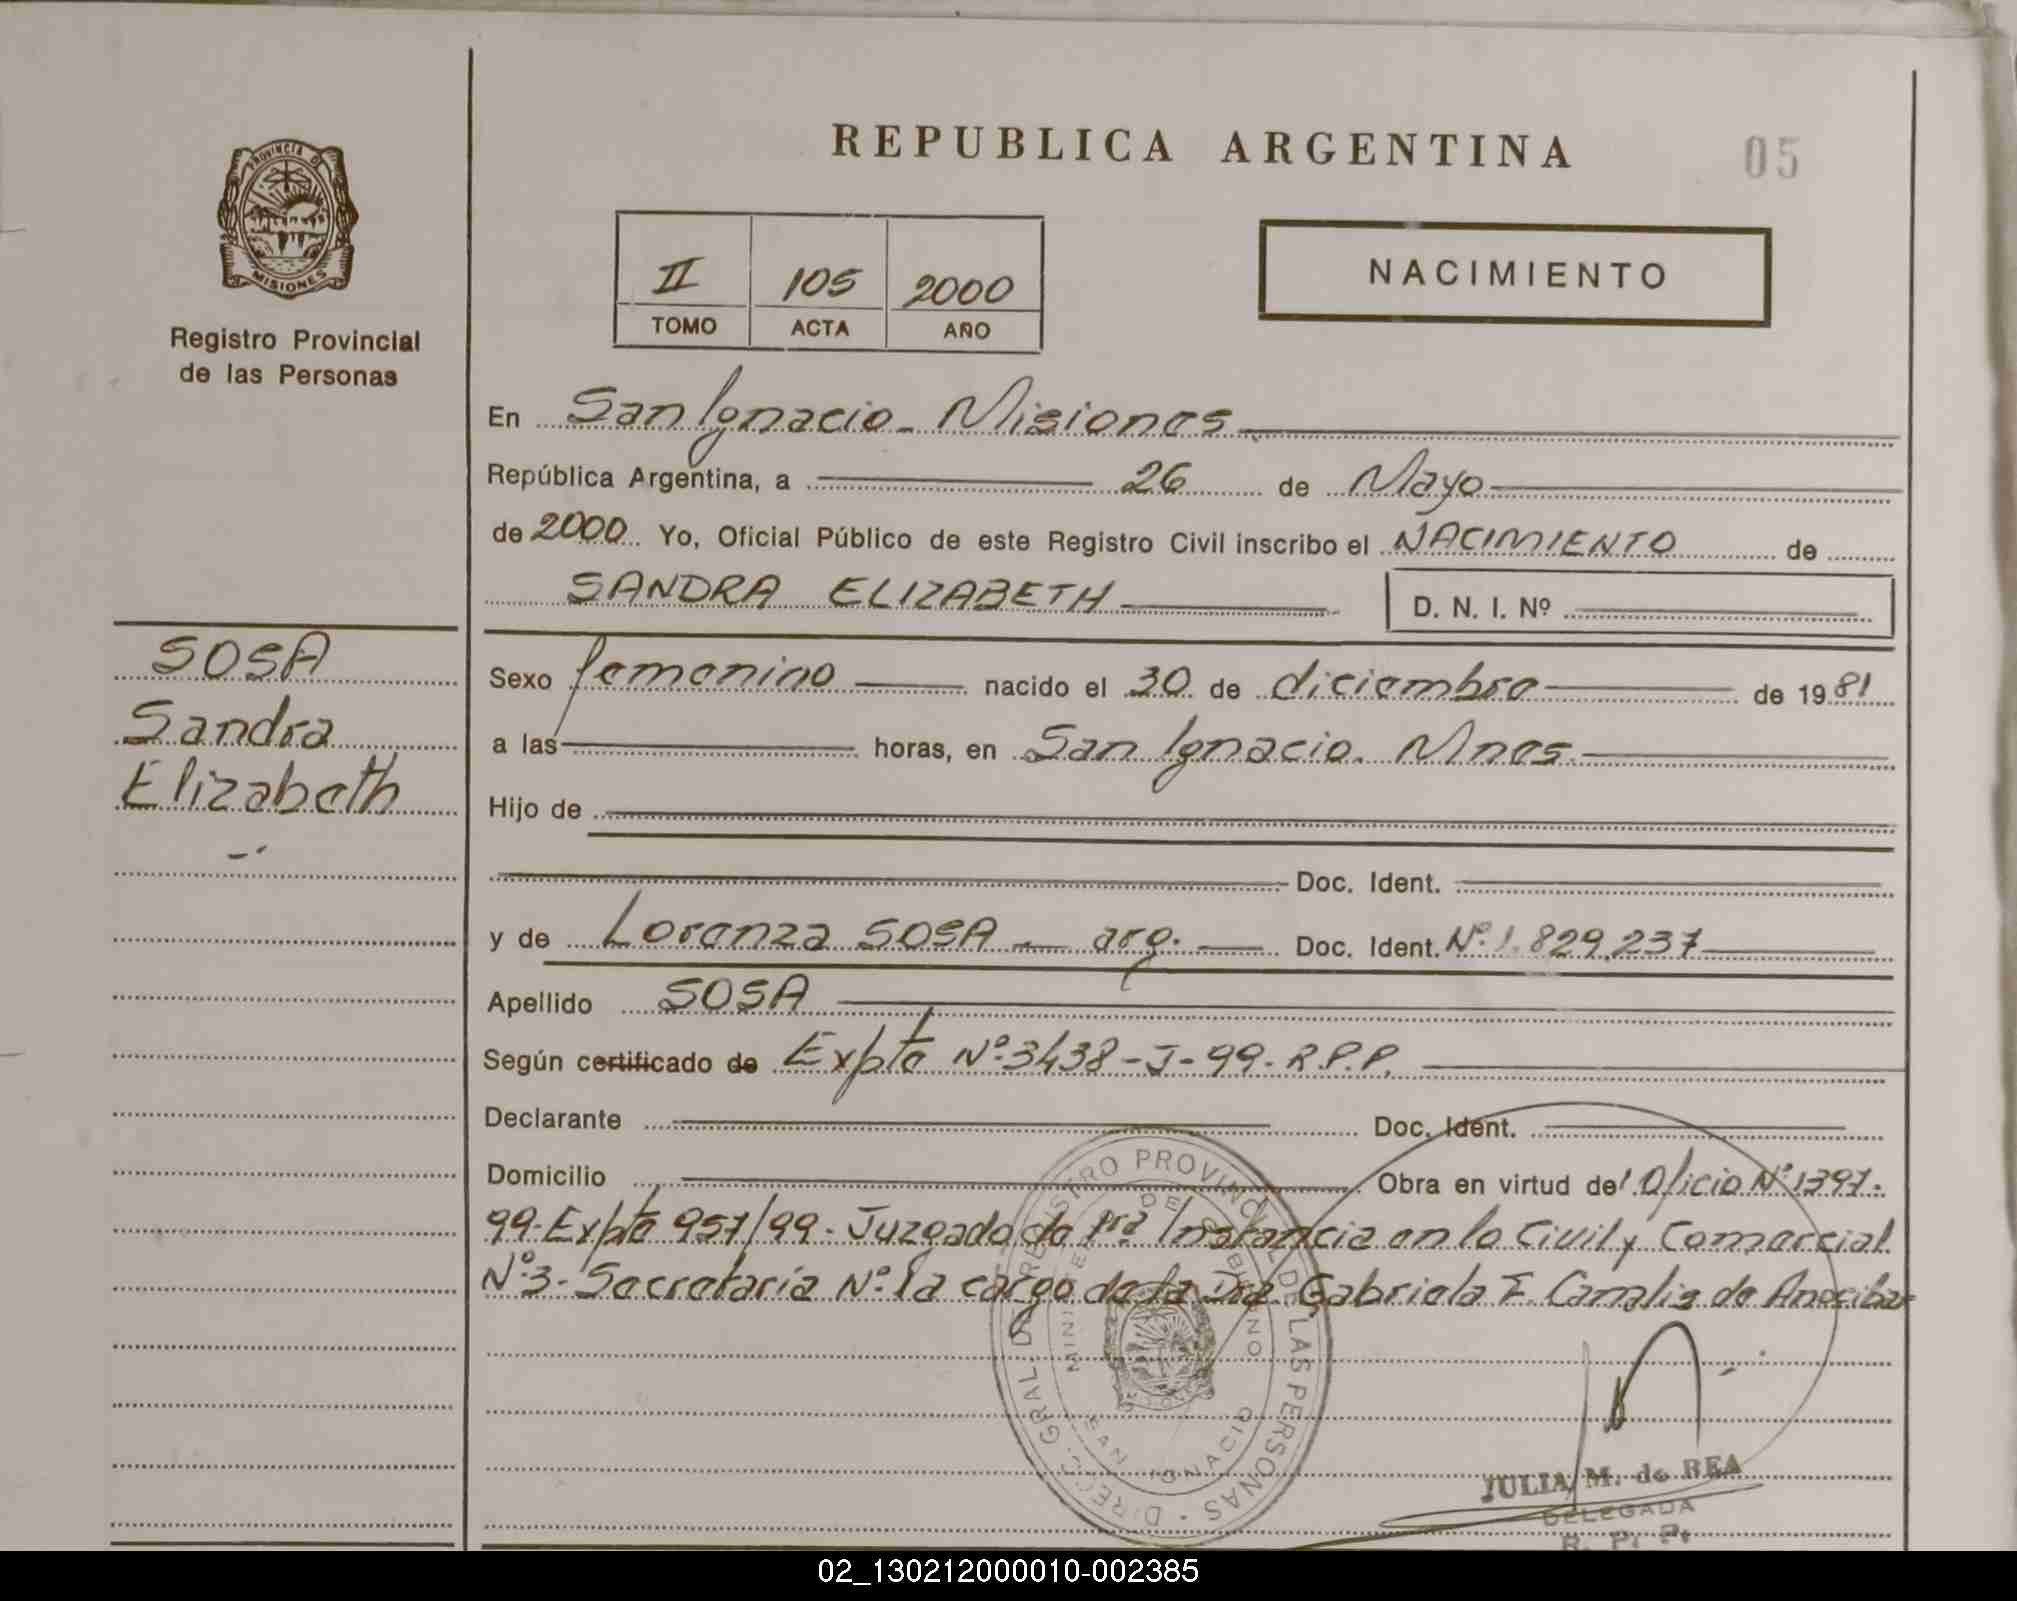 REPUBLICA ARGENTINA
05
PROVINCIA DE
MISIONES
Registro Provincial
de las Personas
II 105 2000
TOMO ACTA AÑO
NACIMIENTO
En San Ignacio - Misiones
República Argentina, a 26 de Mayo
de 2000 Yo, Oficial Público de este Registro Civil inscribo el NACIMIENTO de
SANDRA ELIZABETH D. N. I. Nº
SOSA
Sandra
Elizabeth
Sexo femenino nacido el 30 de diciembre de 1981
a las horas, en San Ignacio. Mnes.
Hijo de
Doc. Ident.
y de Lorenza SOSA - arg. Doc. Ident. Nº 1.829.237
Apellido SOSA
Según certificado de Expte Nº 3438-J-99-R.P.P.
Declarante Doc. Ident.
Domicilio Obra en virtud del Oficio Nº 1397-
99-Expte 957/99-Juzgado de 1ra Instancia en lo Civil y Comercial
Nº 3-Secretaría Nº 1 a cargo de la Dra. Gabriela F. de
DIREC. GRAL. DEL REGISTRO PROVINCIAL DE LAS PERSONAS
MINISTERIO DE GOBIERNO
SAN IGNACIO
JULIA M. de REA
DELEGADA
R. P. P.
02_130212000010-002385